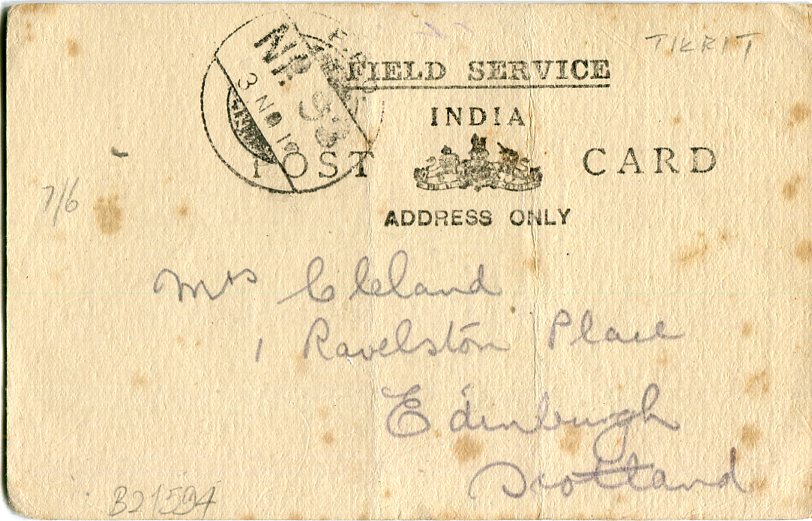 TIKRIT
F.P.O.
No. 93
3 NO 1
FIELD SERVICE
INDIA
POST CARD
ADDRESS ONLY
7/6
Mrs Cleland
1 Ravelston Place
Edinburgh
Scotland
B21594